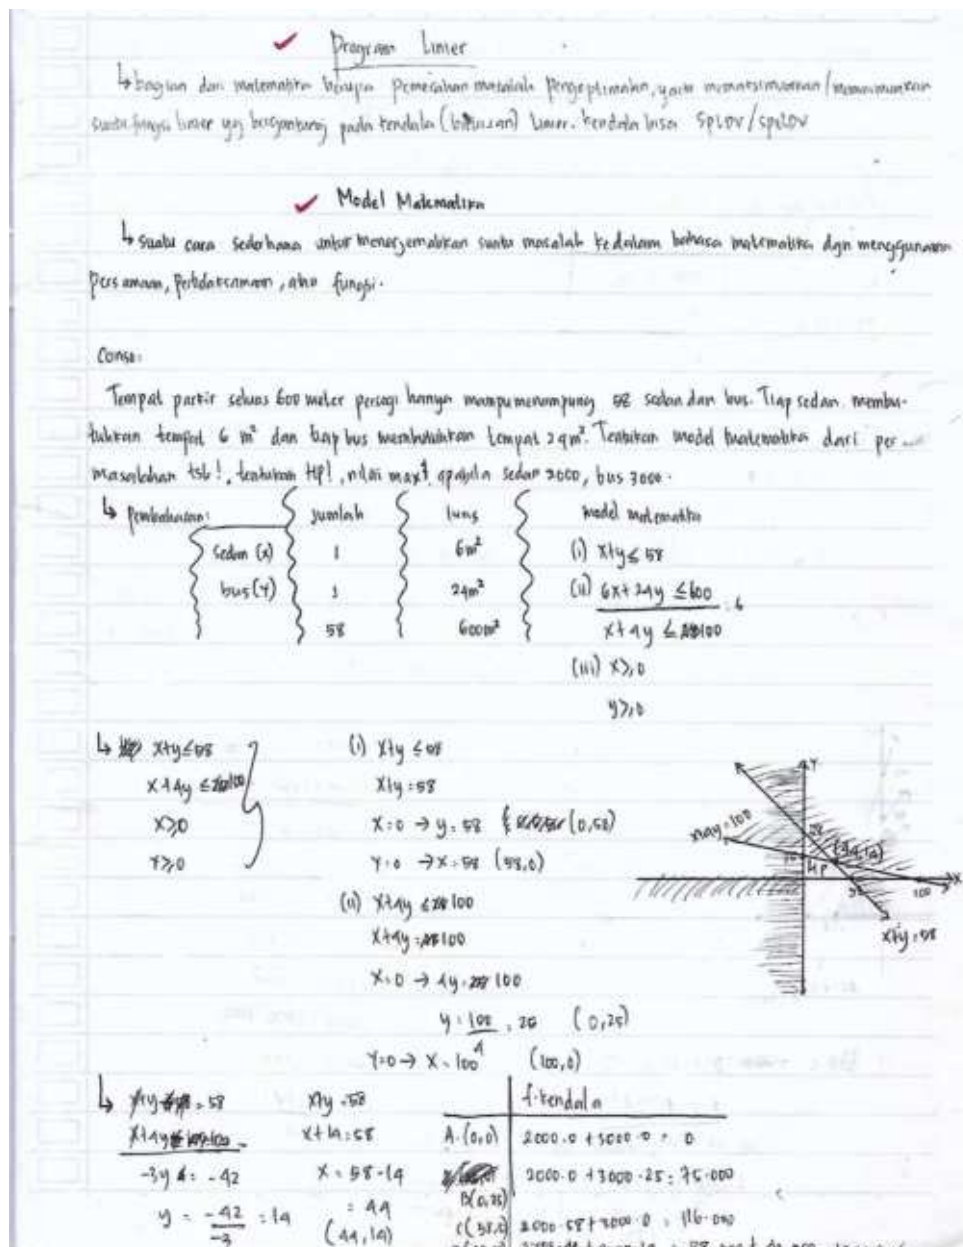 Program Linier
↳ bagian dari matematika berupa pemecahan masalah pengoptimalan, yaitu memaksimumkan/meminimumkan
suatu fungsi linier yg bergantung pada kendala (batasan) linier. kendala bisa SPLDV/SPtLDV
Model Matematika
↳ suatu cara sederhana untuk menerjemahkan suatu masalah kedalam bahasa matematika dgn menggunakan
persamaan, pertidaksamaan, atau fungsi.
Tempat parkir seluas 600 meter persegi hanya mampu menampung 58 sedan dan bus. Tiap sedan membu-
tuhkan tempat 6 m² dan tiap bus membutuhkan tempat 24m². Tentukan model matematika dari per
masalahan tsb!, tentukan HP!, nilai max apabila sedan 2000, bus 3000.
↳ Pembahasan: jumlah luas model matematika
sedan (x) 1 6m² (i) x+y ≤ 58
bus (y) 1 24m² (ii) 6x+24y ≤ 600 :6
58 600m² x+4y ≤ 100
(iii) x ≥ 0
y ≥ 0
↳ x+y ≤ 58
x+4y ≤ 100
x ≥ 0
y ≥ 0
(i) x+y ≤ 58
x+y = 58
x=0 → y=58 (0,58)
y=0 → x=58 (58,0)
(ii) x+4y ≤ 100
x+4y = 100
x=0 → 4y = 100
y = 100/4 = 25 (0,25)
y=0 → x=100 (100,0)
Y
x+4y=100
58
(44,14)
HP
58
100
X
x+y=58
↳ x+y = 58
x+4y = 100 -
-3y = -42
y = -42/-3 = 14
x+y = 58
x+14 = 58
x = 58-14
= 44
(44,14)
f. kendala
A. (0,0) 2000.0 + 3000.0 = 0
B(0,25) 2000.0 + 3000.25 = 75.000
C(58,0) 2000.58 + 3000.0 = 116.000